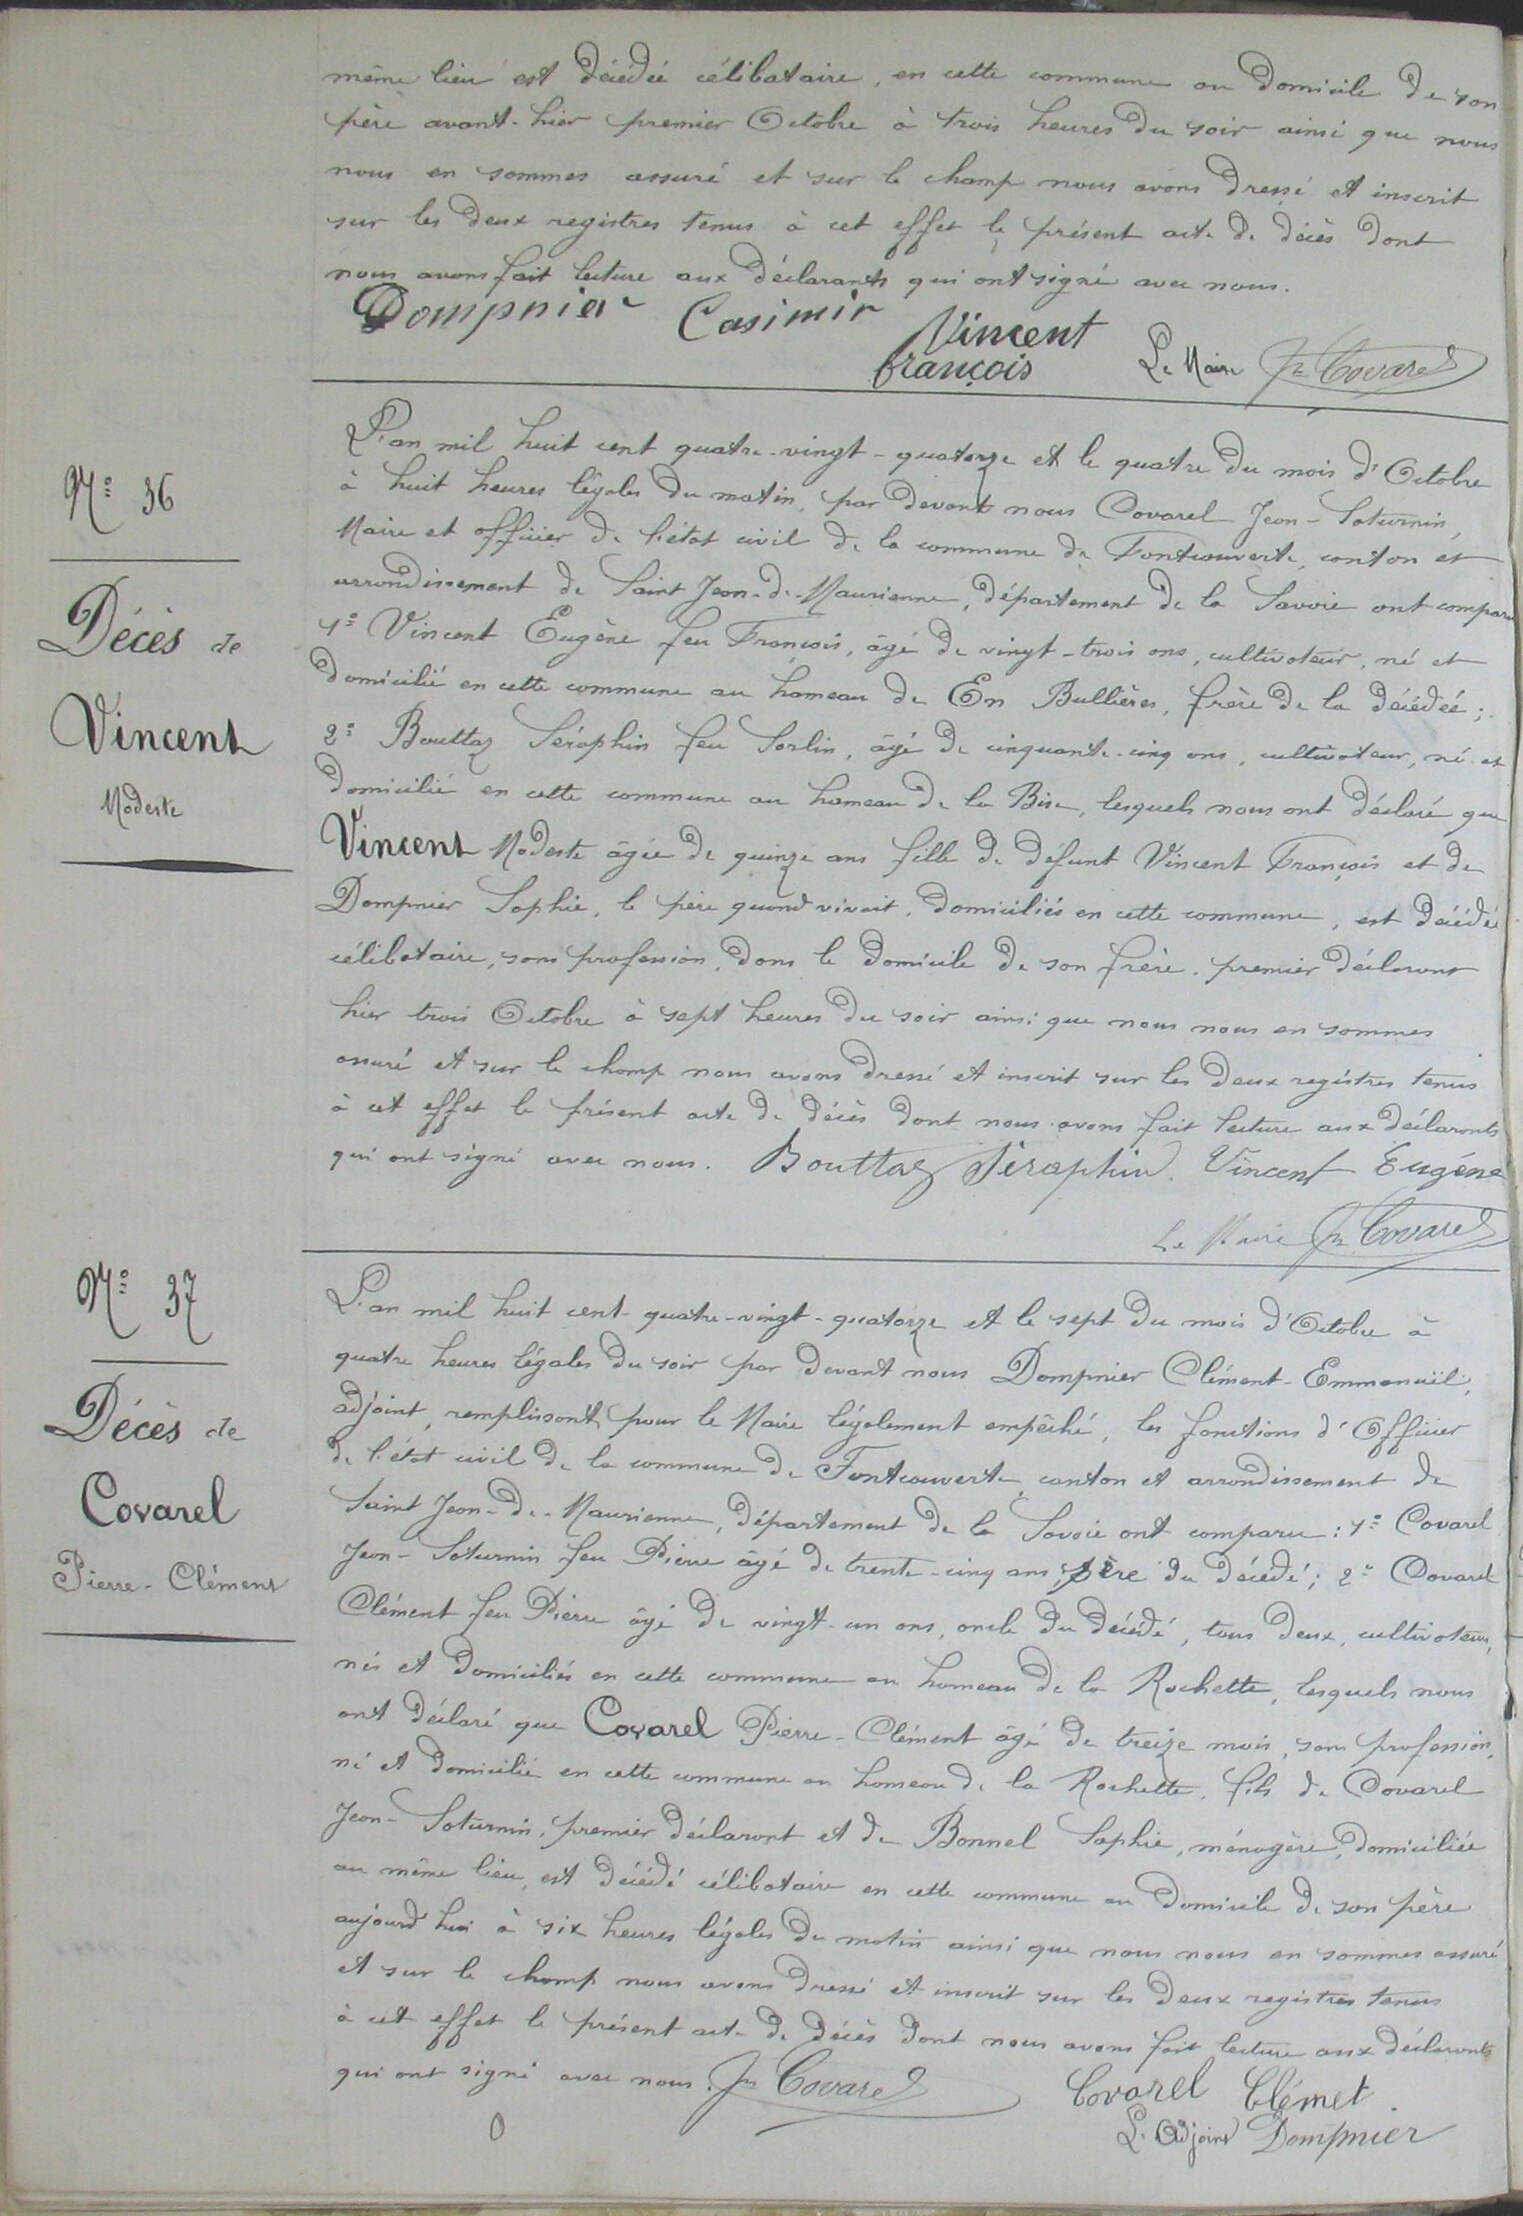 même lieu est décédée célibataire, en cette commune au domicile de son
père avant-hier premier Octobre à trois heures du soir ainsi que nous
nous en sommes assuré et sur le champ nous avons dressé et inscrit
sur les deux registres tenus à cet effet le présent acte de décès dont
nous avons fait lecture aux déclarants qui ont signé avec nous.
Dompnier Casimir Vincent
françois Le Maire Jn Covarel
N° 36
Décès de
Vincent
Modeste
L'an mil huit cent quatre-vingt-quatorze et le quatre du mois d'Octobre
à huit heures légales du matin, par devant nous Covarel Jean-Saturnin,
Maire et officier de l'état civil de la commune de Fontcouverte, canton et
arrondissement de Saint Jean-de-Maurienne, département de la Savoie ont comparu
1° Vincent Eugène feu François, âgé de vingt-trois ans, cultivateur, né et
domicilié en cette commune au hameau de En Bullières, frère de la décédée;
2° Bouttaz Séraphin feu Sorlin, âgé de cinquante-cinq ans, cultivateur, né et
domicilié en cette commune au hameau de la Bise, lesquels nous ont déclaré que
Vincent Modeste âgée de quinze ans fille de défunt Vincent François et de
Dompnier Sophie, le père quand vivait, domiciliés en cette commune, est décédée
célibataire, sans profession, dans le domicile de son frère, premier déclarant
hier trois Octobre à sept heures du soir ainsi que nous nous en sommes
assuré et sur le champ nous avons dressé et inscrit sur les deux registres tenus
à cet effet le présent acte de décès dont nous avons fait lecture aux déclarants
qui ont signé avec nous. Bouttaz Séraphin. Vincent Eugène
Le Maire Jn Covarel
N° 37
Décès de
Covarel
Pierre-Clément
L'an mil huit cent-quatre-vingt-quatorze et le sept du mois d'Octobre à
quatre heures légales du soir par devant nous Dompnier Clément-Emmanuël,
adjoint, remplissant pour le Maire légalement empêché, les fonctions d'Officier
de l'état civil de la commune de Fontcouverte, canton et arrondissement de
Saint Jean-de-Maurienne, département de la Savoie ont comparu: 1° Covarel
Jean-Saturnin feu Pierre âgé de trente-cinq ans, père du décédé; 2° Covarel
Clément feu Pierre âgé de vingt-un ans, oncle du décédé, tous deux, cultivateurs,
nés et domiciliés en cette commune au hameau de la Rochette, lesquels nous
ont déclaré que Covarel Pierre-Clément âgé de treize mois, sans profession,
né et domicilié en cette commune au hameau de la Rochette, fils de Covarel
Jean-Saturnin, premier déclarant et de Bonnel Sophie, ménagère, domiciliée
au même lieu, est décédé célibataire en cette commune au domicile de son père
aujourd'hui à six heures légales du matin ainsi que nous nous en sommes assuré
et sur le champ nous avons dressé et inscrit sur les deux registres tenus
à cet effet le présent acte de décès dont nous avons fait lecture aux déclarants
qui ont signé avec nous. Jn Covarel Covarel Clémet
L'Adjoint Dompnier